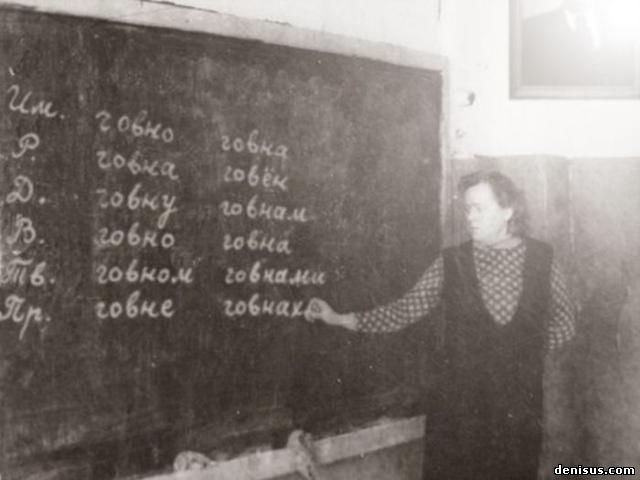 Им. говно говна
Р. говна говён
Д. говну говнам
В. говно говна
Тв. говном говнами
Пр. говне говнах
denisus.com